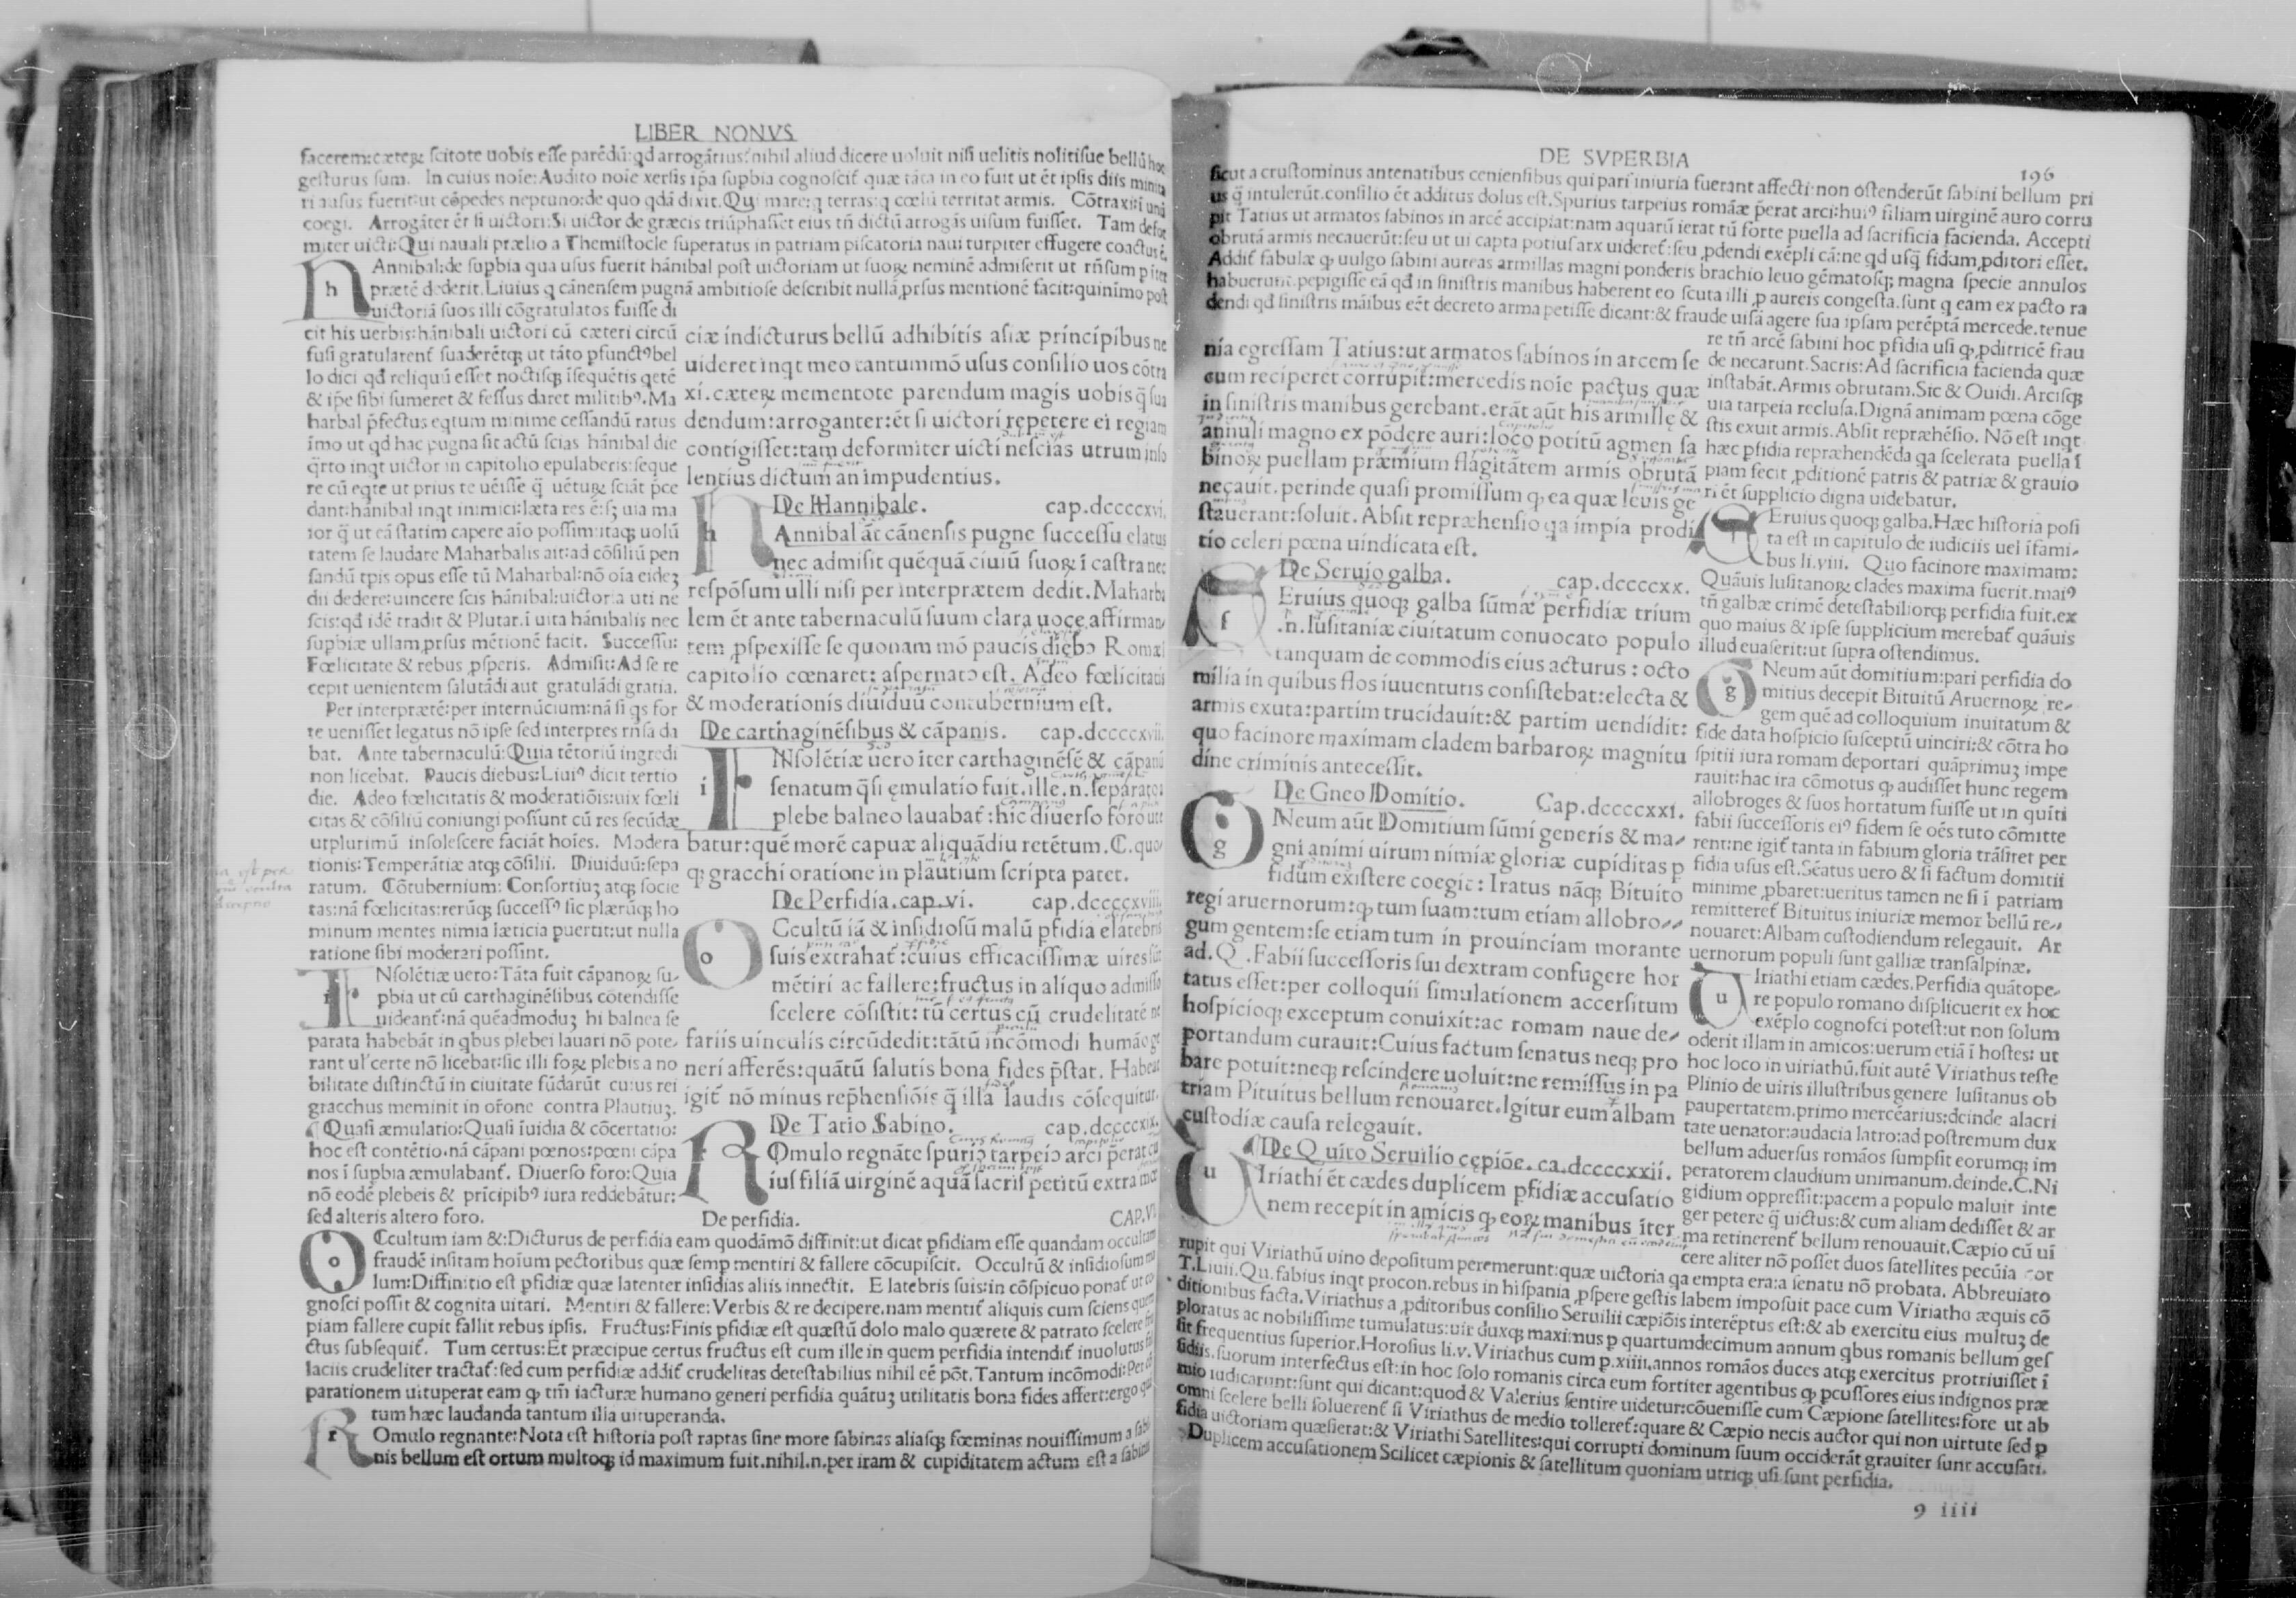 LIBER NONVS
facerem:cæteꝝ ſcitote uobis eſſe parēdū:qd arrogātius:nihil aliud dicere uoluit niſi uelitis nolitiſue bellū hoc
geſturus ſum. In cuius noīe:Audito noīe xerſis ip̄a ſupbia cognoſcit̄ quæ tāta in eo fuit ut ēt ipſis diis
ri auſus fuerit:ut cōpedes neptuno:de quo qdā dixit.Qui mare:q terras:q cœlū territat armis. Cōtraxi:ī unū
coegi. Arrogāter ēt ſi uictori:Si uictor de græcis triūphaſſet eius tn̄ dictū arrogās uiſum fuiſſet. Tam defor
miter uicti:Qui nauali prælio a Themiſtocle ſuperatus in patriam piſcatoria naui turpiter effugere coactus ē.
h
Annibal:de ſupbia qua uſus fuerit hānibal poſt uictoriam ut ſuoꝝ neminē admiſerit ut rn̄ſum p īter
prætē dederit.Liuius q cānenſem pugnā ambitioſe deſcribit nullā ꝓrſus mentionē facit:quinīmo poſt
uictoriā ſuos illi cōgratulatos fuiſſe di
cit his uerbis:hānibali uictori cū cæteri circū
fuſi gratularent̄ ſuaderētqꝫ ut tāto pfunctꝰ bel
lo diei qd reliquū eſſet noctiſqꝫ īſequētis qetē
& ip̄e ſibi ſumeret & feſſus daret militibꝰ.Ma
harbal p̄fectus eqtum minime ceſſandū ratus
īmo ut qd hac pugna ſit actū ſcias hānibal die
q̄rto inqt uictor in capitolio epulaberis:ſeque
re cū eqte ut prius te uēiſſe q̄ uētuꝝ ſciāt p̄ce
dant:hānibal inqt inimici:læta res ē:ſꝫ uia ma
ior q̄ ut eā ſtatim capere aīo poſſim:itaqꝫ uolū
tatem ſe laudare Maharbalis ait:ad cōſiliū pen
ſandū tp̄is opus eſſe tū Maharbal:nō oīa eidē
dii dedere:uincere ſcis hānibal:uictoria uti ne
ſcis:qd idē tradit & Plutar.ī uita hānibalis nec
ſupbiæ ullam ꝓrſus mētionē facit. Succeſſu:
Fœlicitate & rebus ꝓſperis. Admiſit:Ad ſe re
cepit uenientem ſalutādi aut gratulādi gratia.
Per interprætē:per internūcium:nā ſi qs for
te ueniſſet legatus nō ipſe ſed interpres rn̄ſa da
bat. Ante tabernaculū:Quia tētoriū ingredi
non licebat. Paucis diebus:Liuiꝰ dicit tertio
die. Adeo fœlicitatis & moderatiōis:uix fœli
citas & cōſiliū coniungi poſſunt cū res ſecūdæ
utplurimū inſoleſcere faciāt hoīes. Modera
tionis:Temperātiæ atqꝫ cōſilii. Diuiduū:ſepa
ratum. Cōtubernium: Conſortiuꝫ atqꝫ ſocie
tas:nā fœlicitas:rerūqꝫ ſucceſſꝰ ſic plærūqꝫ ho
minum mentes nimia læticia puertit:ut nulla
ratione ſibi moderari poſſint.
i
Nſolētiæ uero:Tāta fuit cāpanoꝝ ſu-
pbia ut cū carthaginēſibus cōtendiſſe
uideant̄:nā quēadmoduꝫ hi balnea ſe
parata habebāt in qbus plebei lauari nō pote-
rant ul' certe nō licebat:ſic illi foꝝ plebis a no
bilitate diſtinctū in ciuitate fūdarūt cuius rei
gracchus meminit in or̄one contra Plautiuꝫ.
Quaſi æmulatio:Quaſi īuidia & cōcertatio:
hoc eſt contētio.nā cāpani pœnos:pœni cāpa
nos ī ſupbia æmulabant̄. Diuerſo foro:Quia
nō eodē plebeis & prīcipibꝰ iura reddebātur:
ſed alteris altero foro.
ciæ indicturus bellū adhibitis aſiæ principibus ne
uideret inqt meo tantummō uſus conſilio uos cōtra
xi.cæteꝝ mementote parendum magis uobis q̄ ſua
dendum:arroganter:ēt ſi uictori repetere ei regiam
contigiſſet:tam deformiter uicti neſcias utrum inſo
lentius dictum an impudentius.
De Hannibale. cap.dccccxvi.
h
Annibal āt cānenſis pugne ſucceſſu elatus
nec admiſit quēquā ciuiū ſuoꝝ ī caſtra nec
reſpōſum ulli niſi per interprætem dedit.Maharba
lem ēt ante tabernaculū ſuum clara uoce affirman
tem ꝓſpexiſſe ſe quonam mō paucis diebꝰ Romæ ī
capitolio cœnaret: aſpernatꝰ eſt. Adeo fœlicitatis
& moderationis diuiduū contubernium eſt.
De carthaginēſibus & cāpanis. cap.dccccxvii.
i
Nſolētiæ uero īter carthaginēſē & cāpanū
ſenatum q̄ſi ęmulatio fuit.ille.n.ſeparato a
plebe balneo lauabat̄:hic diuerſo foro ute
batur:quē morē capuæ aliquādiu retētum.C.quo
qꝫ gracchi oratione in plautium ſcripta patet.
De Perfidia.cap.vi. cap.dccccxviii.
o
Ccultū iā & inſidioſū malū pfidia e latebris
ſuis extrahat̄:cuius efficaciſſimæ uires ſūt
mētiri ac fallere:fructus in aliquo admiſſo
ſcelere cōſiſtit: tū certus cū crudelitatē ne
fariis uinculis circūdedit:tātū incōmodi humāo ge
neri afferēs:quātū ſalutis bona fides p̄ſtat. Habeat
igit̄ nō minus rep̄henſiōis q̄ illa laudis cōſequitur.
De Tatio Sabino. cap.dccccxix.
r
Omulo regnāte ſpuriꝰ tarpeiꝰ arci p̄erat cu
ius filiā uirginē aquā ſacris petitū extra mœ
De perfidia. CAP.VI
o
Ccultum iam &:Dicturus de perfidia eam quodāmō diffinit:ut dicat pfidiam eſſe quandam occultam
fraudē inſitam hoīum pectoribus quæ ſemp mentiri & fallere cōcupiſcit. Occultū & inſidioſum ma
lum:Diffinitio eſt pfidiæ quæ latenter inſidias aliis innectit. E latebris ſuis:in cōſpicuo ponat̄ ut co
gnoſci poſſit & cognita uitari. Mentiri & fallere: Verbis & re decipere.nam mentit̄ aliquis cum ſciens
piam fallere cupit fallit rebus ipſis. Fructus:Finis pfidiæ eſt quæſtū dolo malo quærere & patrato ſcelere
ctus ſubſequit̄. Tum certus:Et præcipue certus fructus eſt cum ille in quem perfidia intendit̄ inuolutus
laciis crudeliter tractat̄:ſed cum perfidiæ addit̄ crudelitas deteſtabilius nihil eē pōt.Tantum incōmodi:
parationem uituperat eam qꝫ tm̄ iacturæ humano generi perfidia quātuꝫ utilitatis bona fides affert:ergo
tum hæc laudanda tantum illa uituperanda.
r
Omulo regnante:Nota eſt hiſtoria poſt raptas ſine more ſabinas aliaſqꝫ fœminas nouiſſimum a ſabi
nis bellum eſt ortum multoqꝫ id maximum fuit.nihil.n.per iram & cupiditatem actum eſt a ſabinis
DE SVPERBIA
196
ſicut a cruſtominus antenatibus cenienſibus qui pari iniuria fuerant affecti:non oſtenderūt ſabini bellum pri
us q̄ intulerūt.conſilio ēt additus dolus eſt.Spurius tarpeius romāæ p̄erat arci:huiꝰ filiam uirginē auro corru
pit Tatius ut armatos ſabinos in arcē accipiat:nam aquarū ierat tū forte puella ad ſacrificia facienda. Accepti
obrutā armis necauerūt:ſeu ut ui capta potius arx uideret̄:ſeu ꝓdendi exēpli cā:ne qd uſqꝫ fidum ꝓditori eſſet.
Addit̄ fabulæ qꝫ uulgo ſabini aureas armillas magni ponderis brachio leuo gēmatoſqꝫ magna ſpecie annulos
habuerunt.pepigiſſe eā qd in ſiniſtris manibus haberent eo ſcuta illi ꝓ aureis congeſta.ſunt q eam ex pacto ra
dendi qd ſiniſtris māibus eēt decreto arma petiſſe dicant:& fraude uiſā agere ſua ipſam perēptā mercede.tenue
nia egreſſam Tatius:ut armatos ſabinos in arcem ſe
cum reciperet corrupit:mercedis noīe pactus quæ
in ſiniſtris manibus gerebant.erāt aūt his armillę &
annuli magno ex pōdere auri:loco potitū agmen ſa
binoꝝ puellam præmium flagitātem armis obrutā
necauit.perinde quaſi promiſſum qꝫ ea quæ leuis ge
ſtauerant:ſoluit. Abſit repræhenſio qa impia prodi
tio celeri pœna uindicata eſt.
De Seruio galba. cap.dccccxx.
ſ
Eruius quoqꝫ galba ſūmæ perfidiæ trium
.n.luſitaniæ ciuitatum conuocato populo
tanquam de commodis eius acturus : octo
milia in quibus flos iuuentutis conſiſtebat:electa &
armis exuta:partim trucidauit:& partim uendidit:
quo facinore maximam cladem barbaroꝝ magnitu
dine criminis anteceſſit.
De Gneo Domitio. Cap.dccccxxi.
g
Neum aūt Domitium ſūmi generis & ma-
gni animi uirum nimiæ gloriæ cupiditas p
fidum exiſtere coegit: Iratus nāqꝫ Bituito
regi aruernorum:qꝫ tum ſuam:tum etiam allobro-
gum gentem:ſe etiam tum in prouinciam morante
ad.Q.Fabii ſucceſſoris ſui dextram confugere hor
tatus eſſet:per colloquii ſimulationem accerſitum
hoſpicioqꝫ exceptum conuixit:ac romam naue de-
portandum curauit:Cuius factum ſenatus neqꝫ pro
bare potuit:neqꝫ reſcindere uoluit:ne remiſſus in pa
triam Pituitus bellum renouaret.Igitur eum albam
cuſtodiæ cauſa relegauit.
De Quīto Seruilio cępiōe. ca.dccccxxii.
u
Iriathi ēt cædes duplicem pfidiæ accuſatio
nem recepit in amicis qꝫ eoꝝ manibus īter
re tn̄ arcē ſabini hoc pfidia uſi qꝫ ꝓditricē frau
de necarunt.Sacris:Ad ſacrificia facienda quæ
inſtabāt.Armis obrutam.Sic & Ouidi.Arciſqꝫ
uia tarpeia recluſa.Dignā animam pœna cōge
ſtis exuit armis.Abſit repræhēſio. Nō eſt inqt
hæc pfidia repræhendēda qa ſcelerata puella ī
piam fecit ꝓditionē patris & patriæ & grauio
ri ēt ſupplicio digna uidebatur.
Eruius quoqꝫ galba.Hæc hiſtoria poſi
ta eſt in capitulo de iudiciis uel īfami-
bus li.viii. Quo facinore maximam:
Quāuis luſitanoꝝ clades maxima fuerit.maiꝰ
tn̄ galbæ crimē deteſtabiliorqꝫ perfidia fuit.ex
quo maius & ipſe ſupplicium merebat̄ quāuis
illud euaſerit:ut ſupra oſtendimus.
g
Neum aūt domitium:pari perfidia do
mitius decepit Bituitū Aruernoꝝ re-
gem quē ad colloquium inuitatum &
fide data hoſpicio ſuſceptū uinciri:& cōtra ho
ſpitii iura romam deportari quāprimuꝫ impe
rauit:hac ira cōmotus qꝫ audiſſet hunc regem
allobroges & ſuos hortatum fuiſſe ut in quīti
fabii ſucceſſoris eiꝰ fidem ſe oēs tuto cōmitte
rent:ne igit̄ tanta in fabium gloria trāſiret per
fidia uſus eſt.Sēatus uero & ſi factum domitii
minime ꝓbaret:ueritus tamen ne ſi ī patriam
remitteret̄ Bituitus iniuriæ memor bellū re-
nouaret:Albam cuſtodiendum relegauit. Ar
uernorum populi ſunt galliæ tranſalpinæ.
u
Iriathi etiam cædes.Perfidia quātope-
re populo romano diſplicuerit ex hoc
exēplo cognoſci poteſt:ut non ſolum
oderit illam in amicos:uerum etiā ī hoſtes: ut
hoc loco in uiriathū.fuit autē Viriathus teſte
Plinio de uiris illuſtribus genere luſitanus ob
paupertatem.primo mercēarius:deinde alacri
tate uenator:audacia latro:ad poſtremum dux
bellum aduerſus romāos ſumpſit eorumqꝫ im
peratorem claudium unimanum.deinde.C.Ni
gidium oppreſſit:pacem a populo maluit inte
ger petere q̄ uictus:& cum aliam dediſſet & ar
ma retinerent̄ bellum renouauit.Cæpio cū uī
cere aliter nō poſſet duos ſatellites pecūia cor
rupit qui Viriathū uino depoſitum peremerunt:quæ uictoria qa empta era:a ſenatu nō probata. Abbreuiato
T.Liuii.Qu.fabius inqt procon.rebus in hiſpania ꝓſpere geſtis labem impoſuit pace cum Viriatho æquis cō
ditionibus facta.Viriathus a ꝓditoribus conſilio Seruilii cæpiōis interēptus eſt:& ab exercitu eius multuꝫ de
ploratus ac nobiliſſime tumulatus:uir duxqꝫ maximus p quartumdecimum annum qbus romanis bellum geſ
ſit frequentius ſuperior.Horoſius li.v.Viriathus cum p.xiiii.annos romāos duces atqꝫ exercitus protriuiſſet ī
ſidiis.ſuorum interfectus eſt:in hoc ſolo romanis circa eum fortiter agentibus qꝫ pcuſſores eius indignos præ
mio iudicarunt:ſunt qui dicant:quod & Valerius ſentire uidetur:cōueniſſe cum Cæpione ſatellites:fore ut ab
omni ſcelere belli ſoluerent̄ ſi Viriathus de medio tolleret̄:quare & Cæpio necis auctor qui non uirtute ſed p
fidia uictoriam quæſierat:& Viriathi Satellites:qui corrupti dominum ſuum occiderāt grauiter ſunt accuſati.
Duplicem accuſationem Scilicet cæpionis & ſatellitum quoniam utriqꝫ uſi ſunt perfidia.
9 iiii